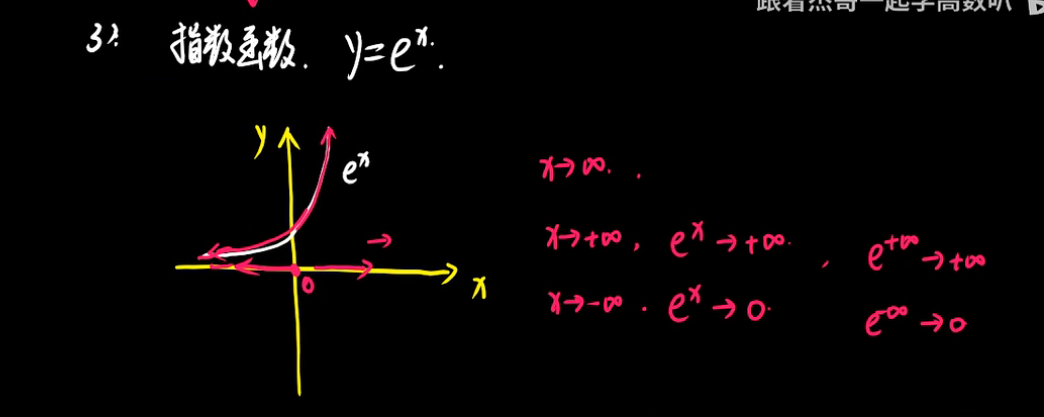 跟着杰哥一起学高数叭
3). 指数函数. y=eˣ.
y
eˣ
x→∞.
x→+∞, eˣ→+∞. , e⁺∞→+∞
0
x
x→-∞. eˣ→0. e⁻∞→0